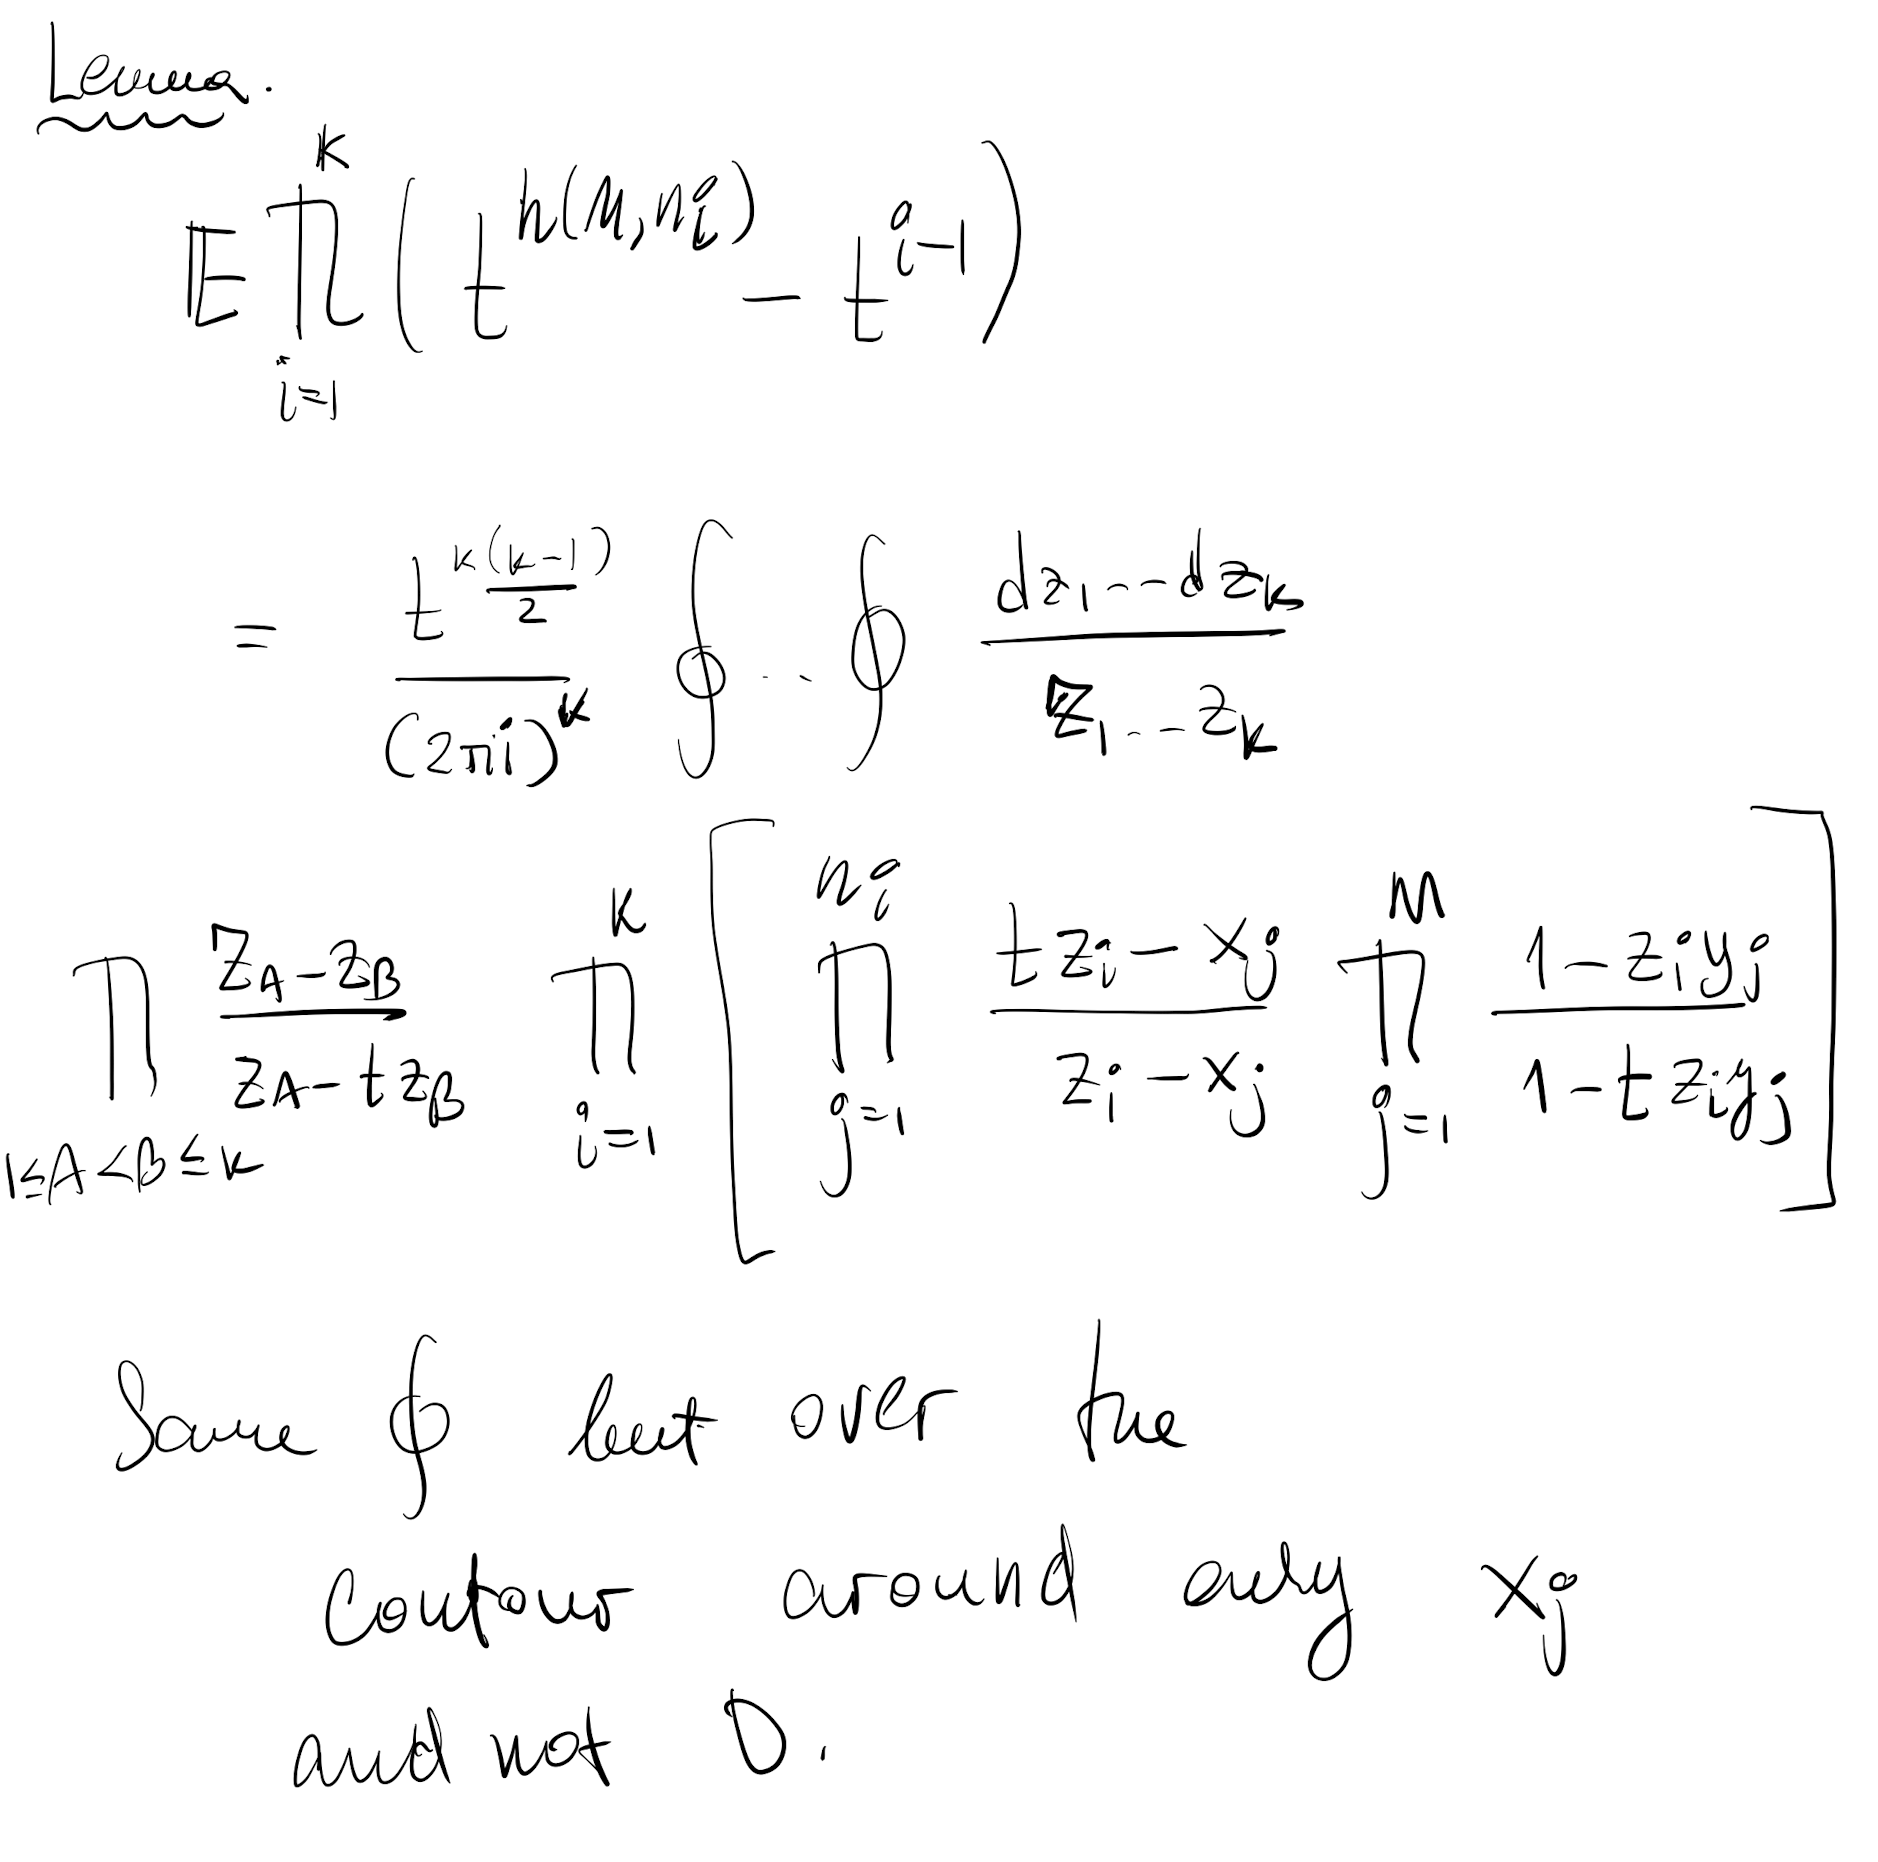 Lemma.
$\mathbb{E} \prod_{i=1}^{k} \left( t^{h(M, n_i)} - t^{i-1} \right)$
$= \frac{t^{\frac{k(k-1)}{2}}}{(2\pi i)^k} \oint \cdots \oint \frac{dz_1 \cdots dz_k}{z_1 \cdots z_k}$
$\prod_{1 \le A < B \le k} \frac{z_A - z_B}{z_A - t z_B} \prod_{i=1}^{k} \left[ \prod_{j=1}^{n_i} \frac{t z_i - x_j}{z_i - x_j} \prod_{j=1}^{M} \frac{1 - z_i y_j}{1 - t z_i y_j} \right]$
Same $\oint$ but over the
contour around only $x_j$
and not 0.